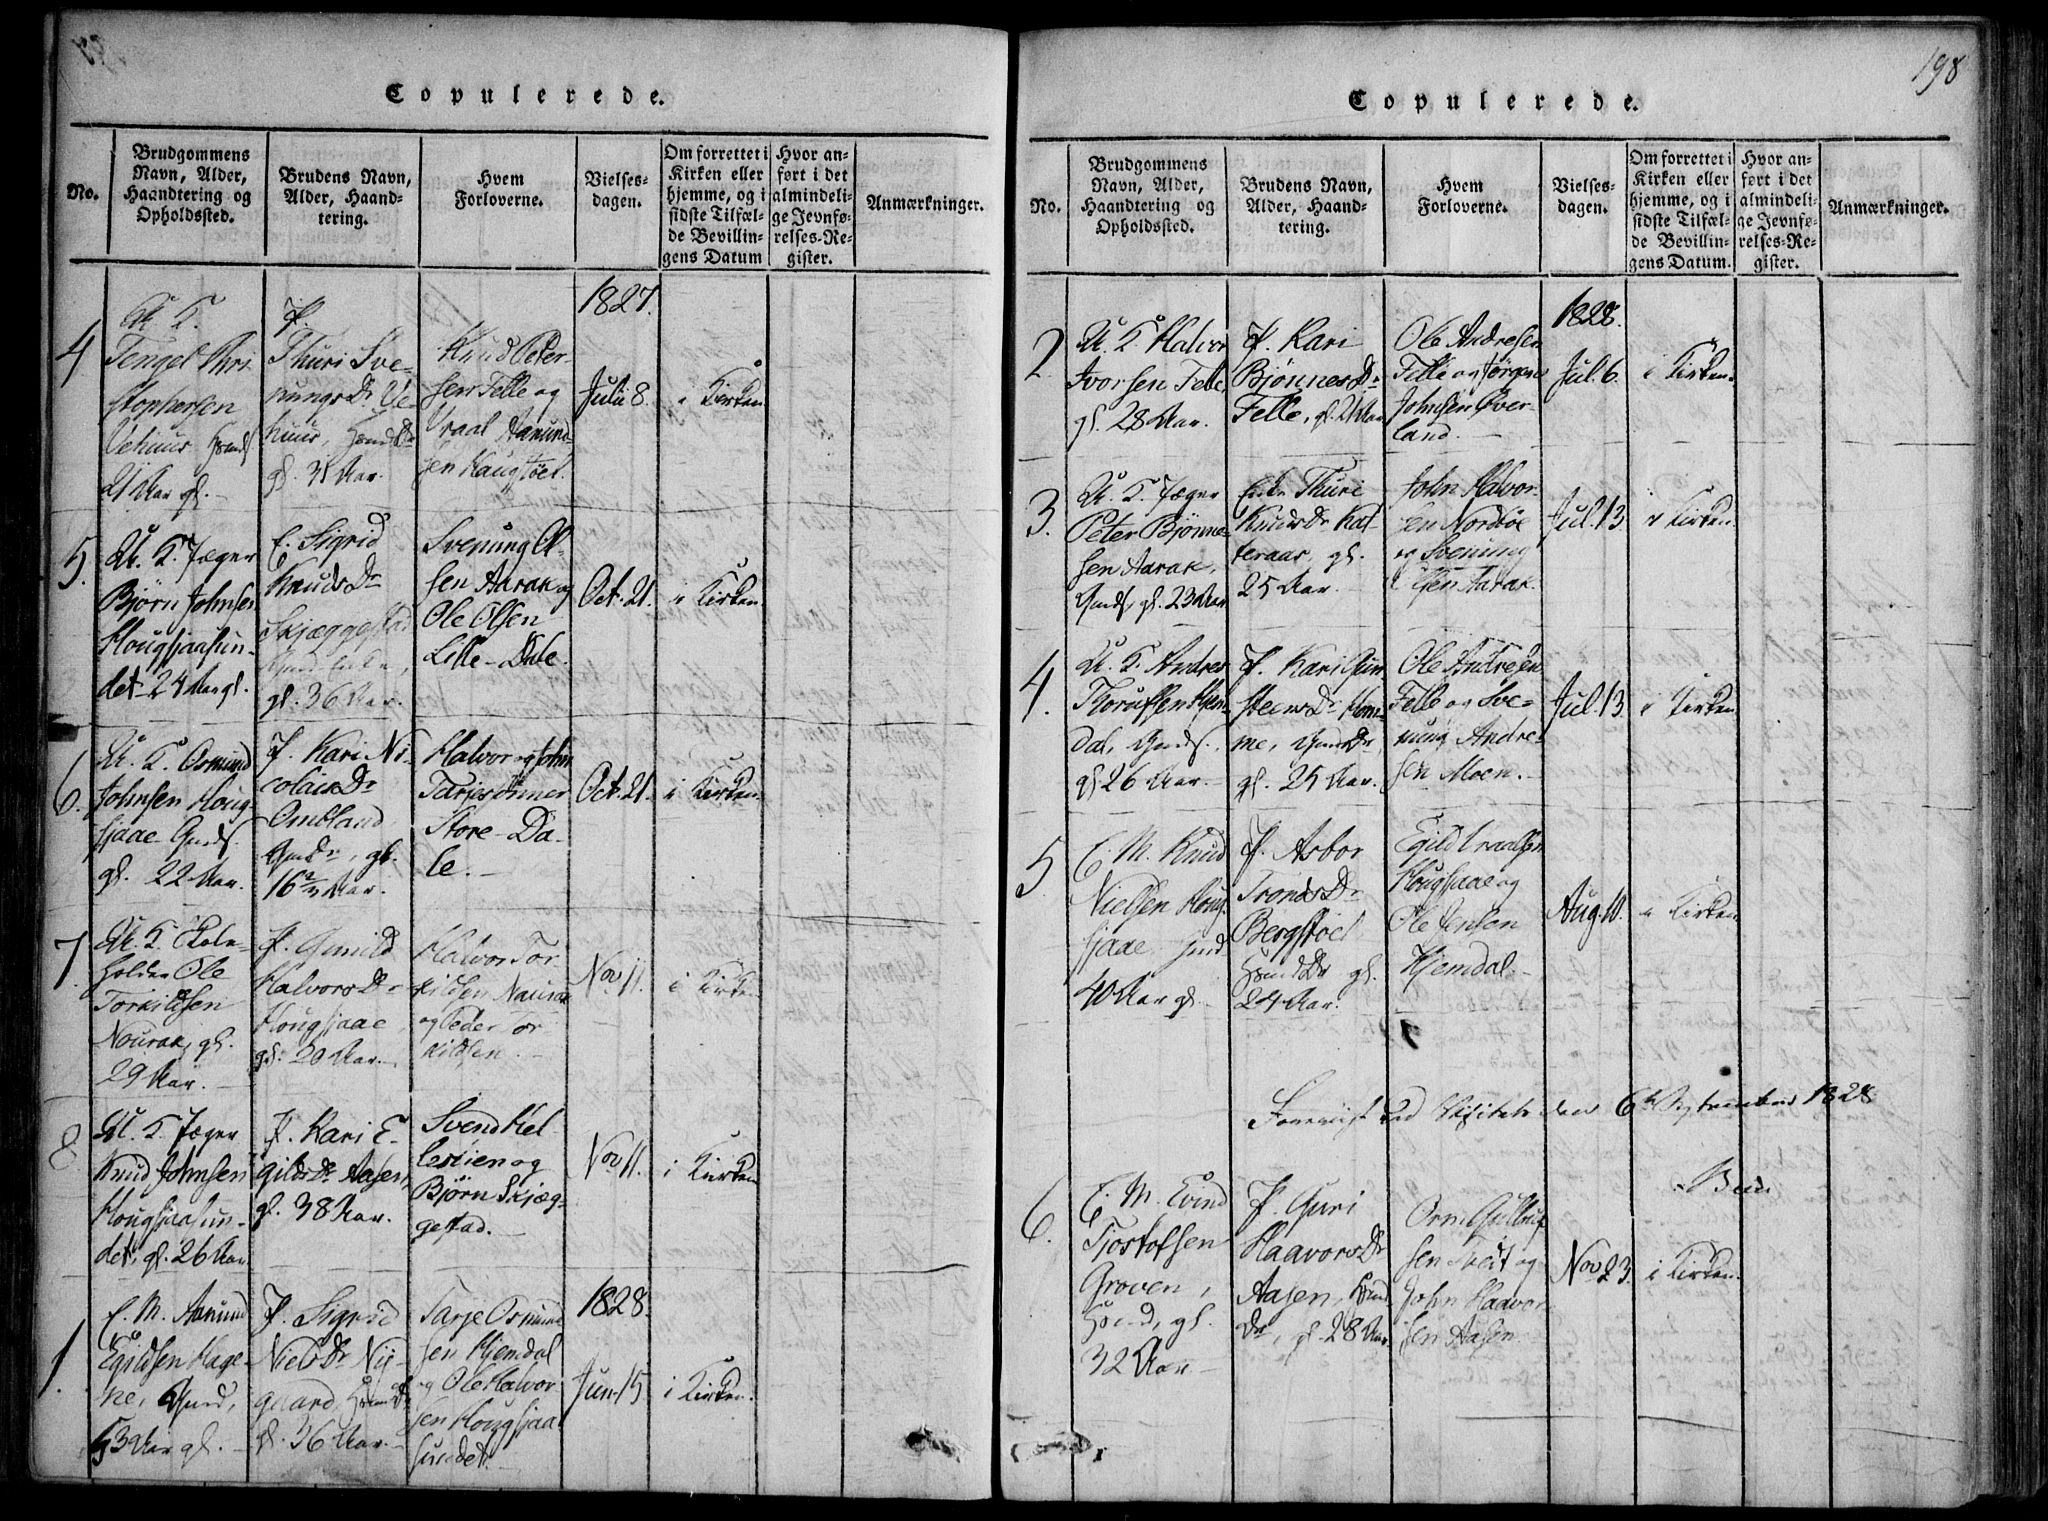 Copulerede.
No.
Brudgommens
Navn, Alder,
Haandtering og
Opholdssted.
Brudens Navn,
Alder, Haand-
tering.
Hvem
Forloverne.
Vielses-
dagen.
Om forrettet i
Kirken eller
hjemme, og i
sidste Tilfæl-
de Bevillin-
gens Datum
Hvor an-
ført i det
almindeli-
ge Jevnfø-
relses-Re-
gister.
Anmærkninger.
1827.
4
U. K.
Tengel Chri
stophersen
Vehuus
21 Aar gl.
P.
Thuri Sve-
nungsDr Ve-
huus,
gl. 31 Aar.
Knud Peter-
sen Felle og
Vraal Aanund-
sen Haugstøel.
Julii 8.
i Kirken
5.
U. K. Jæger
Bjørn Johnsen
Hougsjaasun-
det 24 Aar gl.
E. Sigrid
KnudsDr
Skjæggestad
gl. 36 Aar.
Svenung Ol-
sen Aarak og
Ole Olsen
Lille-Dale.
Oct. 21.
i Kirken
6.
U. K. Osmund
Johnsen Houg-
sjaae Gmds.
gl. 22 Aar.
P. Kari Ni-
colaiDr
Ombland
GmdDr, gl.
16 1/2 Aar.
Halvor og John
Tarjesønner
Store-Da-
le.
Oct. 21.
i Kirken
7.
U. K. Skole-
holder Ole
Torkildsen
Nourak, gl.
29 Aar.
P. Gunild
HalvorsDr
Hougsjaae
gl. 20 Aar.
Halvor Tor-
kildsen Naurak
og Peder Tor-
kildsen.
Nov 11.
i Kirken
8
U. K. Jæger
Knud Johnsen
Hougsjaasun-
det, gl. 26 Aar
P. Kari E-
gildsDr Aasen,
gl. 38 Aar.
Svend Kel-
lestien og
Bjørn Skjæg-
gestad.
Nov 11.
i Kirken
1.
E. M. Aanund
Egildsen Hage-
ne, Gmd,
53 Aar gl.
P. Sigrid
NielsDr Nÿ-
gaard, HsmdDr
gl. 36 Aar.
Tarje Osmund
sen Hjemdal
og Ole Halvor
sen Hougsjaa
sundet.
1828.
Jun. 15
i Kirken.
198
Copulerede.
No.
Brudgommens
Navn, Alder,
Haandtering og
Opholdssted.
Brudens Navn,
Alder, Haand-
tering.
Hvem
Forloverne.
Vielses-
dagen.
Om forrettet i
Kirken eller
hjemme, og i
sidste Tilfæl-
de Bevillin-
gens Datum.
Hvor an-
ført i det
almindeli-
ge Jevnfø-
relses-Re-
gister.
Anmærkninger.
1828.
2.
U. K. Halvor
Ivorsen Felle,
gl. 28 Aar.
P. Kari
BjønnesDr
Felle, gl. 21 Aar
Ole Andresen
Felle og Jørgen
Johnsen Øver-
land.
Jul. 6.
i Kirken.
3.
U. K. Jæger
Peter Bjønne-
sen Aarak,
Gmds, gl. 23 Aar
Enke Thuri
KnudsDr Kat-
teraas, gl.
25 Aar.
John Halvor-
sen Nordbøe
og Svenung
Olsen Aarak.
Jul. 13.
i Kirken.
4.
U. K. Andres
dal, Gmds.
gl. 26 Aar.
P. Kari Gun
steensDr Hom-
me, GmdsDr
gl. 25 Aar.
Ole Andresen
Felle og Sve-
nung Andre-
sen Moen.
Jul. 13.
i Kirken
5
E. M. Knud
Nielsen Houg-
sjaae
40 Aar gl.
P. Asbor
TrondsDr
Bergstøel
HsmdDr gl.
24 Aar.
Egild Vraalsen
Hougsjaae og
Ole Jensen
Hjemdal.
Aug. 10.
i Kirken.
Foreviist ved Visitats den 6te September 1828
6.
E. M. Evind
Tjostolsen
Groven,
Hsmd, gl.
32 Aar
P. Guri
HaavorsDr
Aasen, Hsmd
Dr, gl. 28 Aar.
Orm
sen Tveit og
John Haavor
sen Aasen.
Nov 23.
i Kirken.